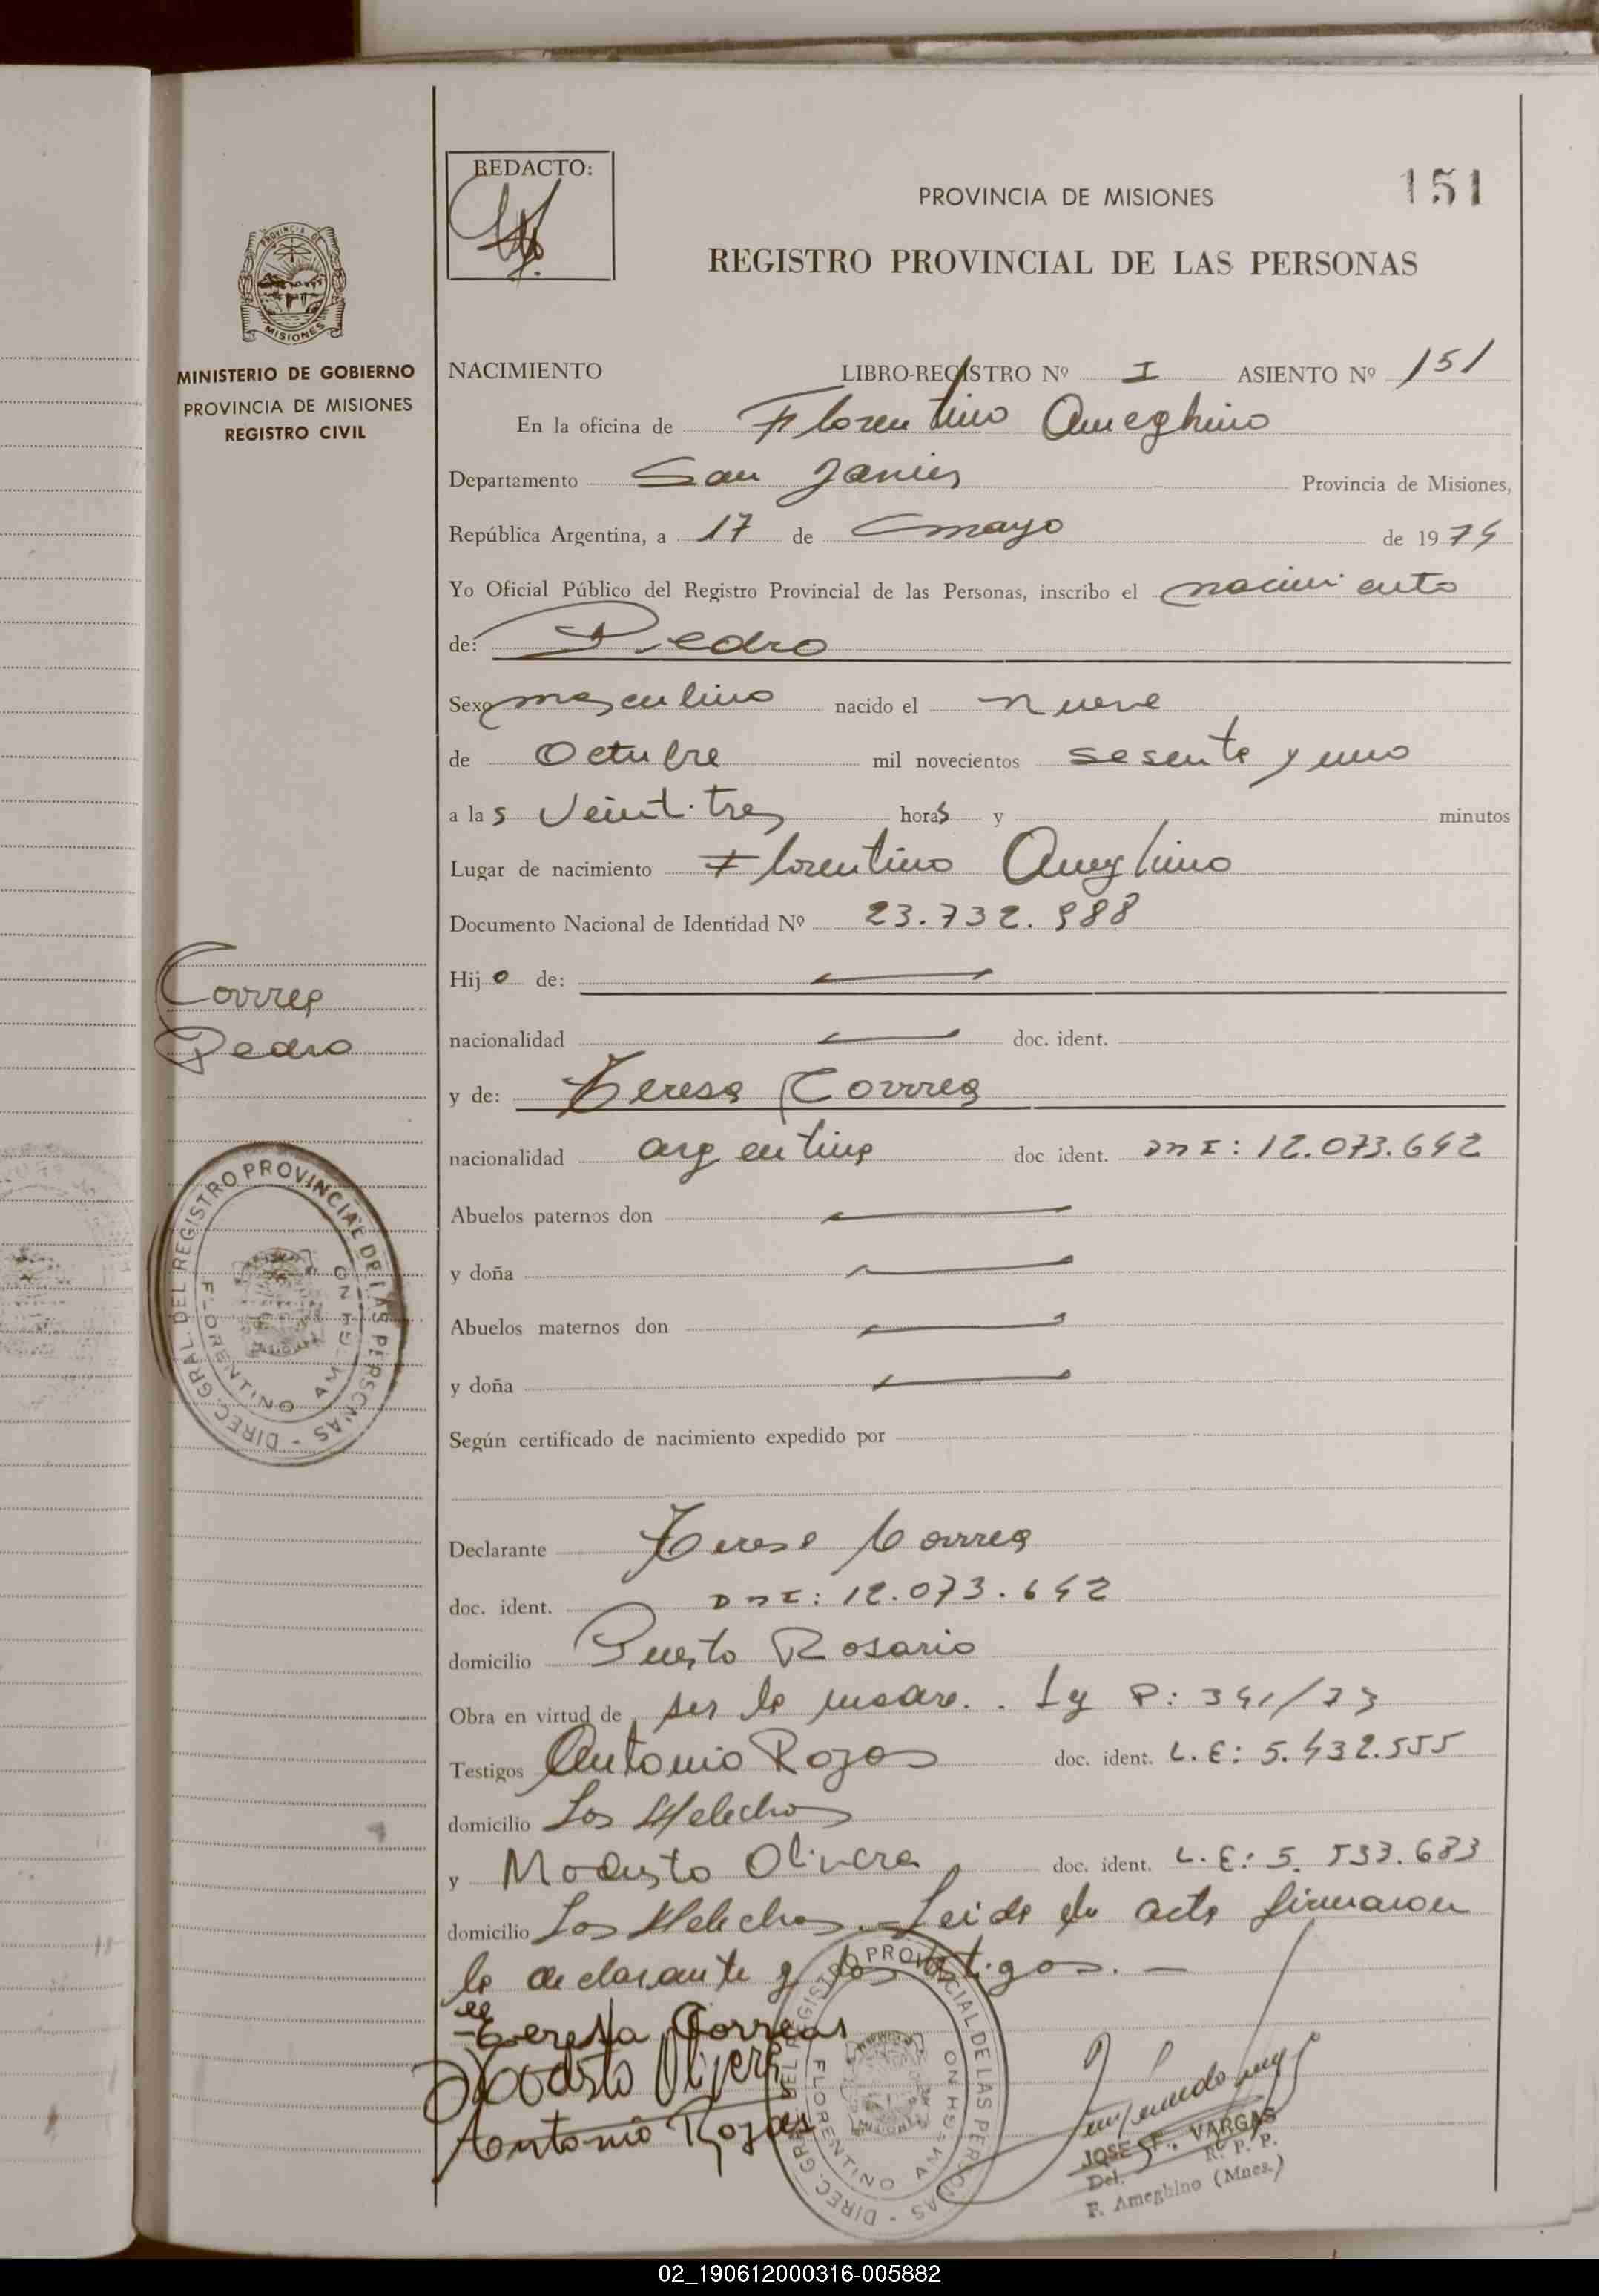 REDACTO:
PROVINCIA DE MISIONES
151
REGISTRO PROVINCIAL DE LAS PERSONAS
MISIONES
MINISTERIO DE GOBIERNO
PROVINCIA DE MISIONES
REGISTRO CIVIL
NACIMIENTO LIBRO-REGISTRO Nº I ASIENTO Nº 151
En la oficina de Florentino Ameghino
Departamento San Javier Provincia de Misiones,
República Argentina, a 17 de mayo de 1974
Yo Oficial Público del Registro Provincial de las Personas, inscribo el nacimiento
de: Pedro
Sexo masculino nacido el nueve
de Octubre mil novecientos sesenta y uno
a las veintitres horas y minutos
Lugar de nacimiento Florentino Ameghino
Documento Nacional de Identidad Nº 23.732.988
Hijo de:
nacionalidad doc. ident.
y de: Teresa Correa
nacionalidad argentina doc ident. DNI: 12.073.642
Abuelos paternos don
y doña
Abuelos maternos don
y doña
Según certificado de nacimiento expedido por
Declarante Teresa Correa
doc. ident. DNI: 12.073.642
domicilio Puerto Rosario
Obra en virtud de ser la madre. Ley P: 341/73
Testigos Antonio Rojas doc. ident. L.E: 5.432.555
domicilio Los Helechos
y Modesto Olivera doc. ident. L.E: 5.533.683
domicilio Los Helechos. Leida el acta firmaron
la declarante y los testigos.
Teresa Correas
Modesto Olivera
Antonio Rojas
Correa
Pedro
DIREC. GRAL DEL REGISTRO PROVINCIAL DE LAS PERSONAS
FLORENTINO AMEGHINO
DIREC. GRAL DEL REGISTRO PROVINCIAL DE LAS PERSONAS
FLORENTINO AMEGHINO
JOSE F. VARGAS
Del. R. P. P.
F. Ameghino (Mnes.)
02_190612000316-005882